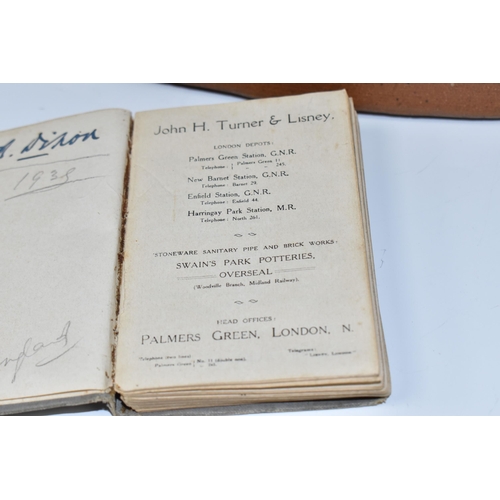 Dixon
1938
England
John H. Turner & Lisney.
LONDON DEPOTS:
Palmers Green Station, G.N.R.
Telephone: Palmers Green
New Barnet Station, G.N.R.
Telephone: Barnet 29.
Enfield Station, G.N.R.
Telephone: Enfield 44.
Harringay Park Station, M.R.
Telephone: North 261.
STONEWARE SANITARY PIPE AND BRICK WORKS:
SWAIN'S PARK POTTERIES,
OVERSEAL
(Woodville Branch, Midland Railway).
HEAD OFFICES:
PALMERS GREEN, LONDON, N.
Telephone (two lines)
Palmers Green No. 11 (double line),
Telegrams:
Lisney, London.